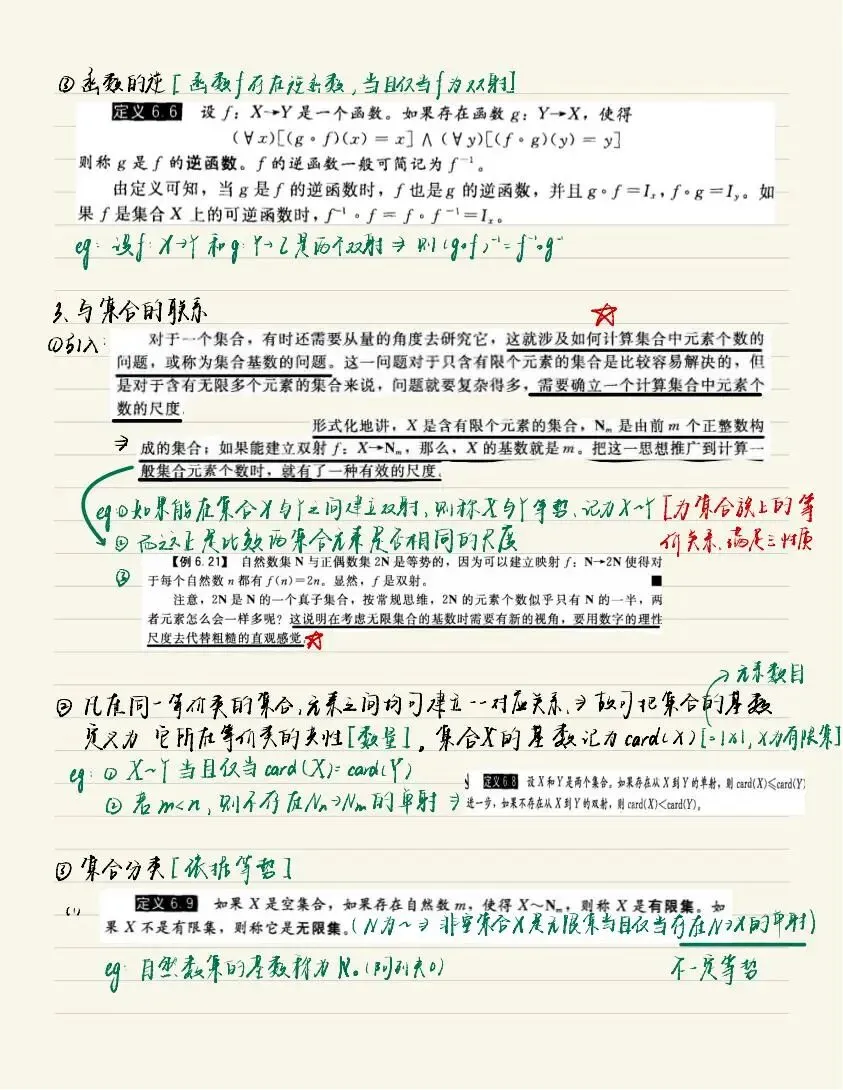 ③ 函数的逆 [函数f存在逆函数,当且仅当f为双射]
定义 6.6 设 f: X→Y 是一个函数。如果存在函数 g: Y→X, 使得
(∀x)[(g∘f)(x) = x] ∧ (∀y)[(f∘g)(y) = y]
则称 g 是 f 的逆函数。f 的逆函数一般可简记为 f⁻¹。
由定义可知,当 g 是 f 的逆函数时,f 也是 g 的逆函数,并且 g∘f=Iₓ, f∘g=Iᵧ。如
果 f 是集合 X 上的可逆函数时,f⁻¹∘f = f∘f⁻¹=Iₓ。
eg: 设f: X→Y 和 g: Y→Z 是两个双射 ⇒ 则(g∘f)⁻¹=f⁻¹∘g⁻¹
3、与集合的联系
①引入:
对于一个集合,有时还需要从量的角度去研究它,这就涉及如何计算集合中元素个数的
问题,或称为集合基数的问题。这一问题对于只含有限个元素的集合是比较容易解决的,但
是对于含有无限多个元素的集合来说,问题就要复杂得多,需要确立一个计算集合中元素个
数的尺度.
形式化地讲,X 是含有限个元素的集合,Nₘ 是由前 m 个正整数构
⇒ 成的集合;如果能建立双射 f: X→Nₘ,那么,X 的基数就是 m。把这一思想推广到计算一
般集合元素个数时,就有了一种有效的尺度.
eg ① 如果能在集合X与Y之间建立双射,则称X与Y等势、记为X~Y [为集合族上的等
价关系、满足三性质
② 而这正是比较两集合元素是否相同的尺度
③ 【例 6.21】 自然数集 N 与正偶数集 2N 是等势的,因为可以建立映射 f: N→2N 使得对
于每个自然数 n 都有 f(n)=2n。显然,f 是双射.
注意,2N 是 N 的一个真子集,按常规思维,2N 的元素个数似乎只有 N 的一半,两
者元素怎么会一样多呢? 这说明在考虑无限集合的基数时需要有新的视角,要用数字的理性
尺度去代替粗糙的直观感觉.
→元素数目
② 凡在同一等价类的集合,元素之间均可建立一一对应关系、⇒ 故可把集合的基数
定义为 它所在等价类的共性[数量]。集合X的基数记为card(X)[=|X|, X为有限集]
eg: ① X~Y 当且仅当 card(X)=card(Y)
② 若m<n, 则不存在Nₙ→Nₘ的单射 ⇒
定义 6.8 设 X 和 Y 是两个集合。如果存在从 X 到 Y 的单射,则 card(X)≤card(Y)
进一步,如果不存在从 X 到 Y 的双射,则 card(X)<card(Y)。
③ 集合分类 [依据等势]
(1) 定义 6.9 如果 X 是空集合,如果存在自然数 m,使得 X~Nₘ,则称 X 是有限集。如
果 X 不是有限集,则称它是无限集。(N为~ ⇒ 非空集合X是无限集当且仅当存在N→X的单射)
eg: 自然数集的基数称为 ℵ₀ (阿列夫0)
不一定等势